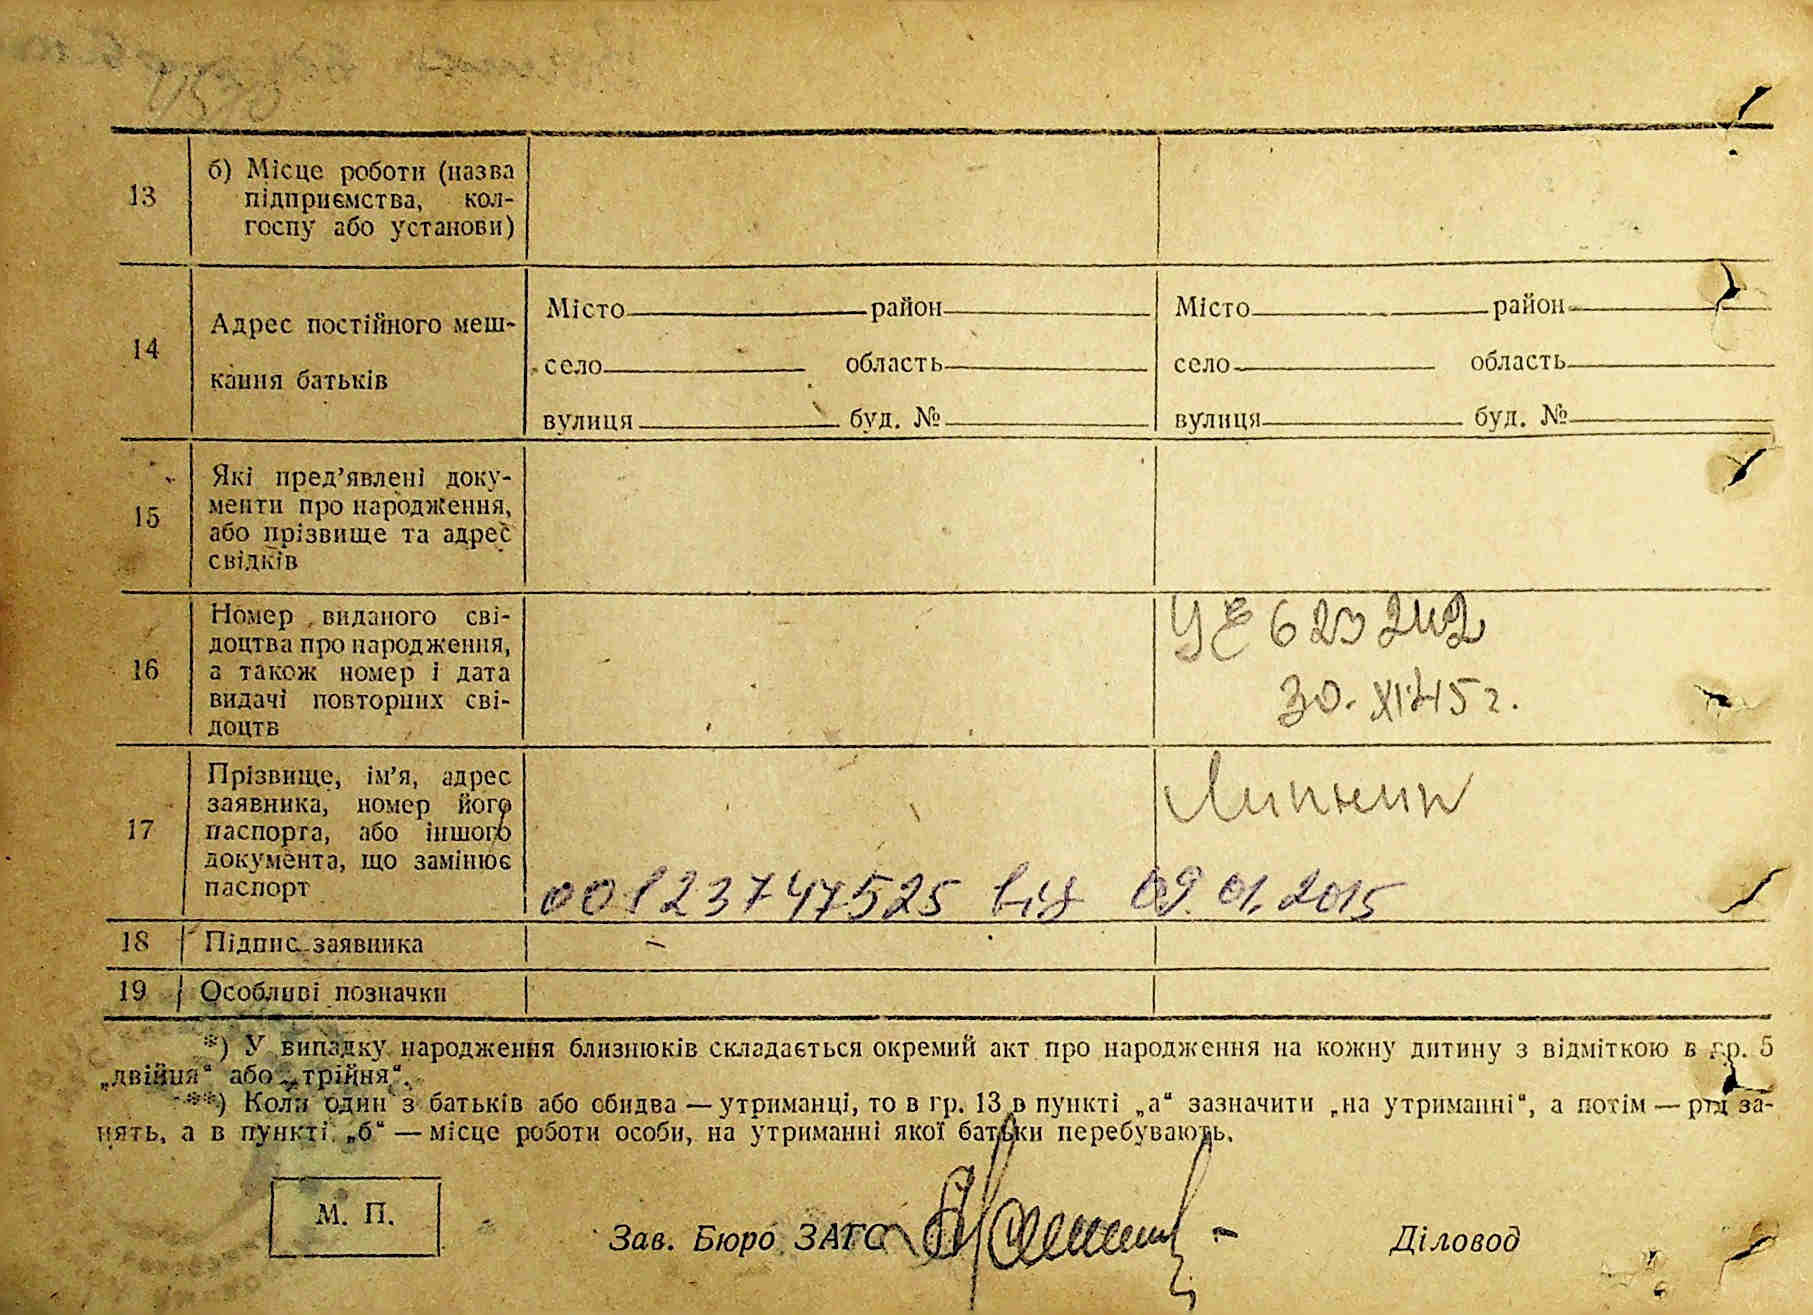 13
б) Місце роботи (назва
підприємства, кол-
госпу або установи)
14
Адрес постійного меш-
кання батьків
Місто район Місто район
село область село область
вулиця буд. № вулиця буд. №
15
Які пред’явлені доку-
менти про народження,
або прізвище та адрес
свідків
16
Номер виданого сві-
доцтва про народження,
а також номер і дата
видачі повторних сві-
доцтв
623242
30. XI 45 г.
17
Прізвище, ім’я, адрес
заявника, номер його
паспорта, або іншого
документа, що замінює
паспорт
00123747525 від 09.01.2015
18 Підпис заявника
19 Особливі позначки
*) У випадку народження близнюків складається окремий акт про народження на кожну дитину з відміткою в гр. 5
„двійня“ або „трійня“.
**) Коли один з батьків або обидва — утриманці, то в гр. 13 в пункті „а“ зазначити „на утриманні“, а потім — рід за-
нять, а в пункті „б“ — місце роботи особи, на утриманні якої батьки перебувають.
М. П.
Зав. Бюро ЗАГС Діловод